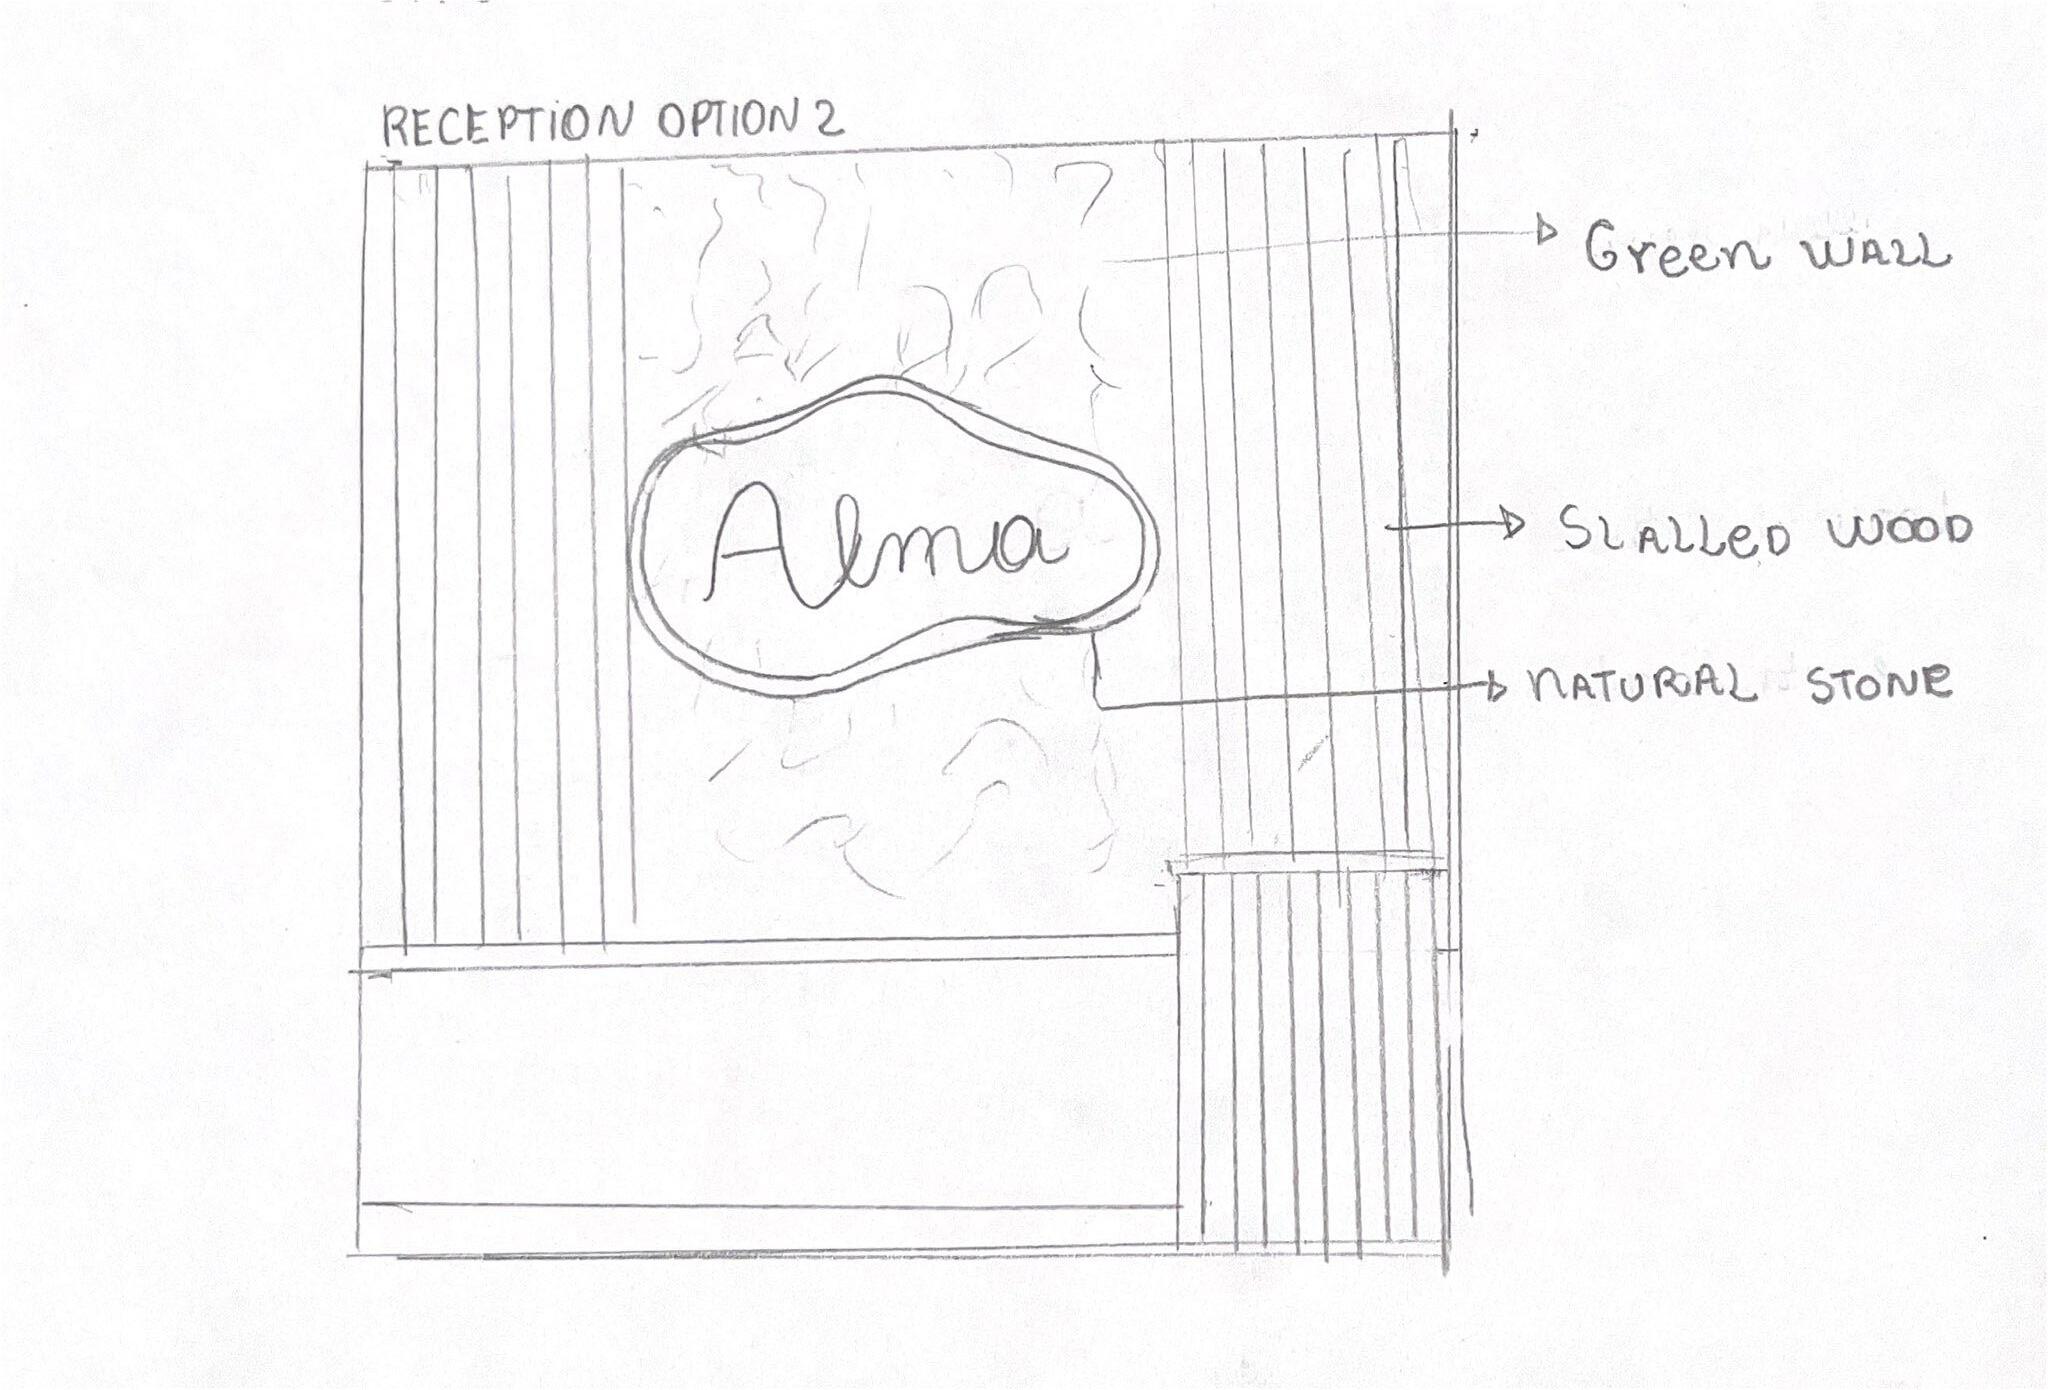 RECEPTION OPTION 2
Green WALL
Alma
SLALLED WOOD
NATURAL STONE